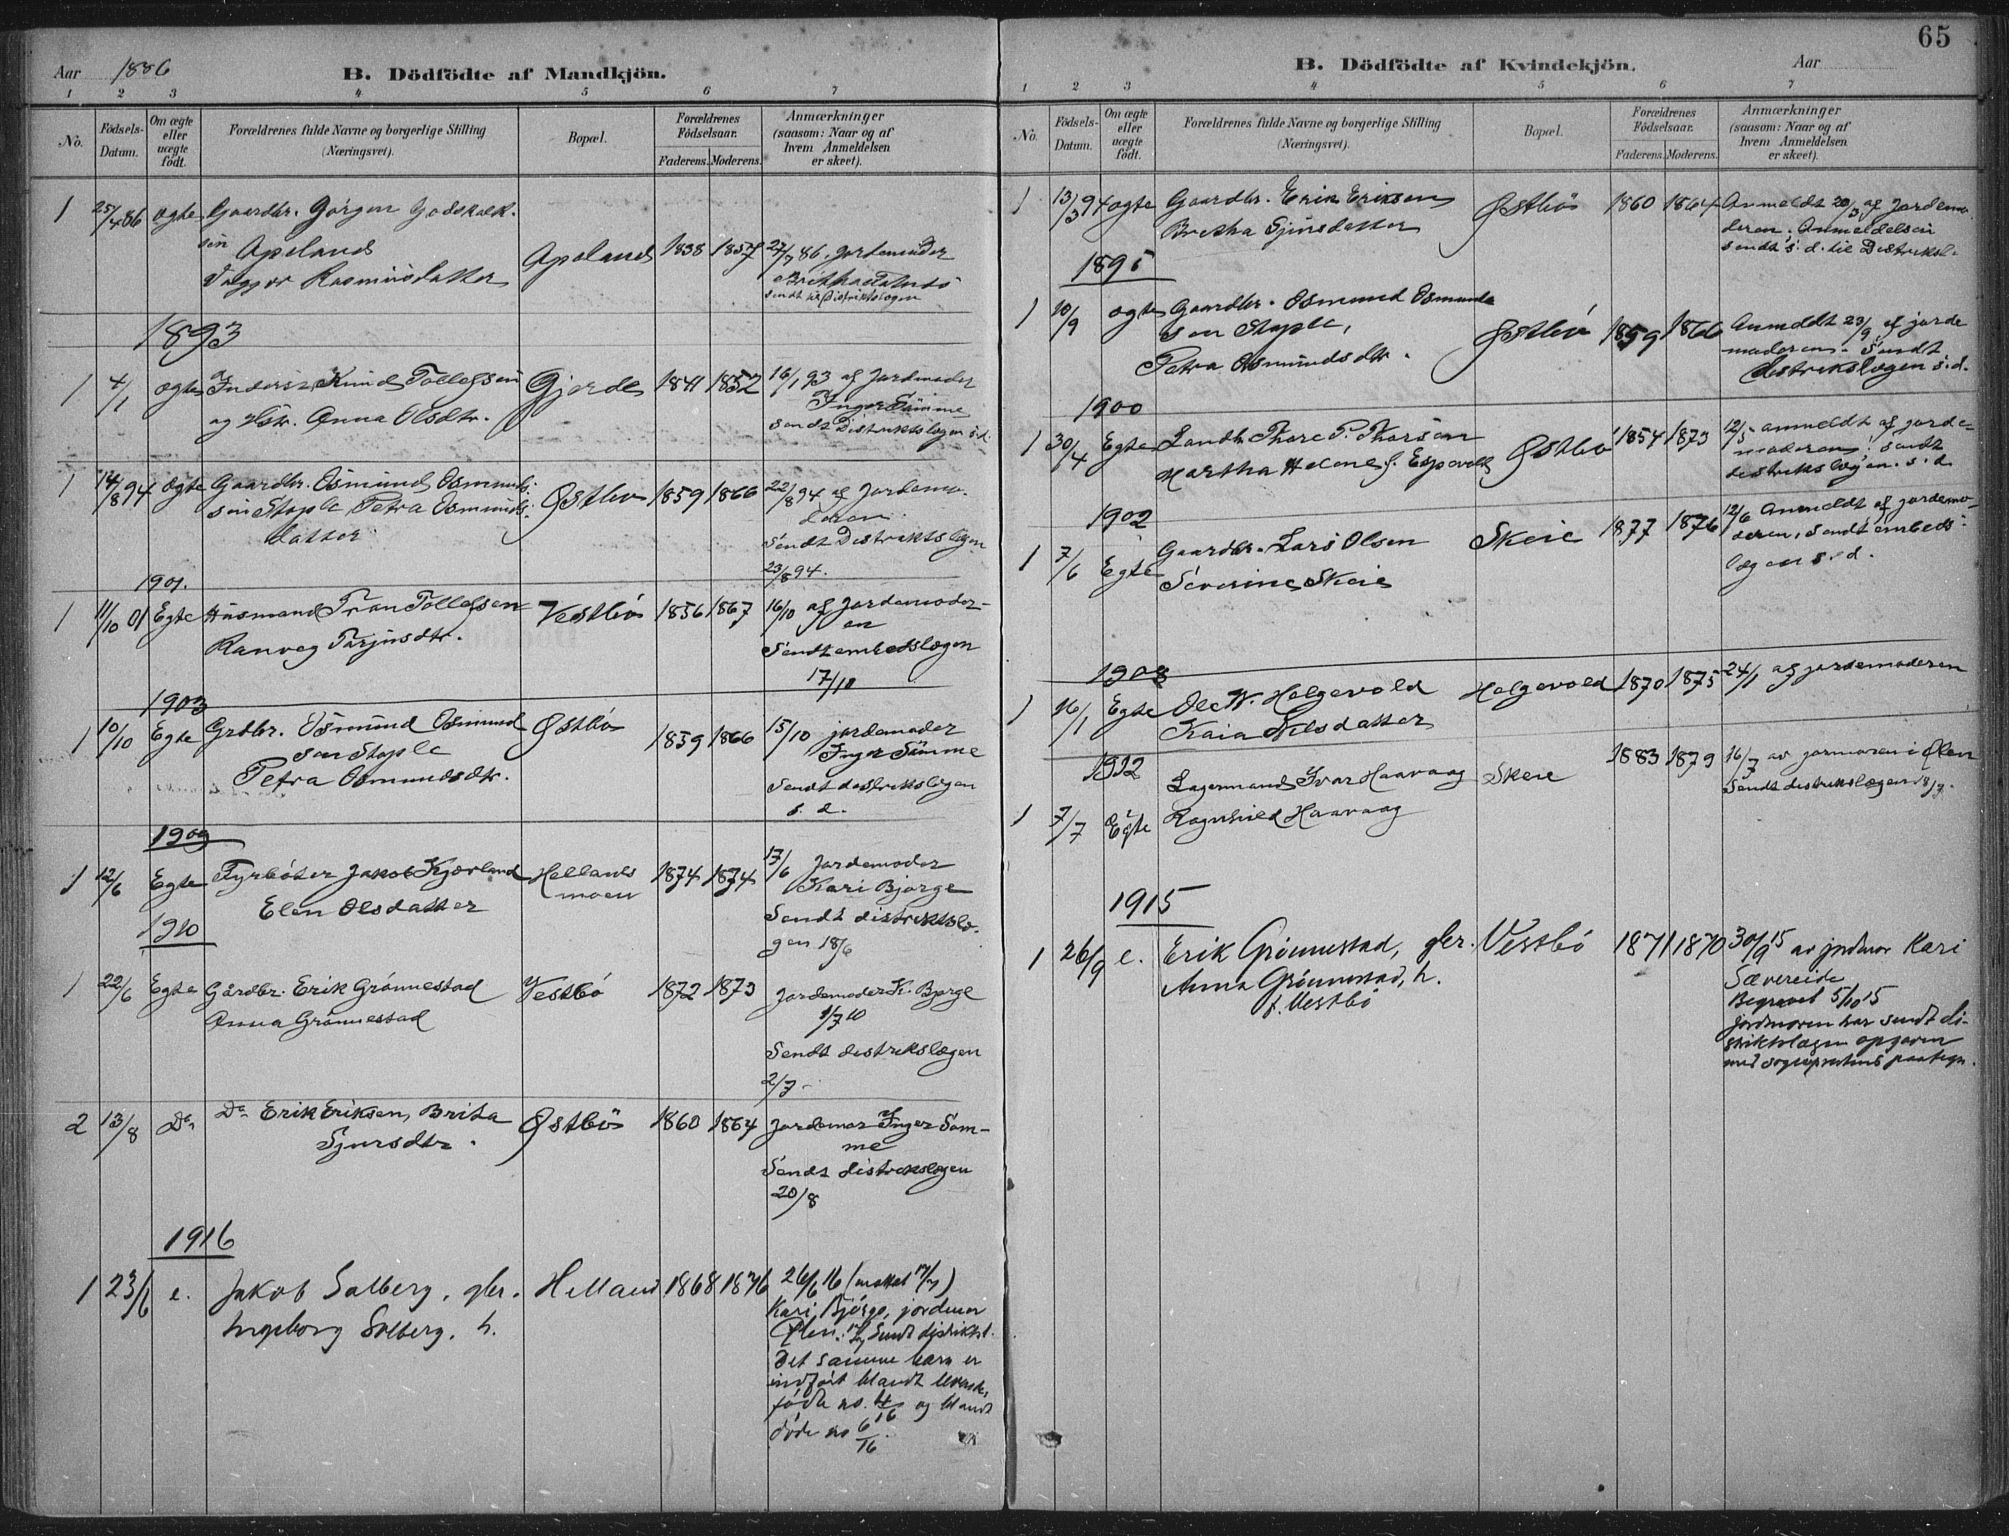 Aar 1886 B. Dödfödte af Mandkjön.
1 2 3 4 5 6 7
No. Födsels-Datum. Om ægte eller uægte födt. Forældrenes fulde Navne og borgerlige Stilling (Næringsvei). Bopæl. Forældrenes Födselsaar. Faderens. Moderens. Anmærkninger (saasom: Naar og af hvem Anmeldelsen er skeet).
1 25/4 86 ægte Gaardbr. Gørgen Godskalk- Apeland 1838 1857 27/7 86, Jordemoder
sen Apeland
sendt til Distriktslægen
1893
1 4/1 ægte Inderst Knud Tollefsen Gjerde 1841 1852 16/1 93 af Jordmoder
og Hstr. Anna Olsdtr. Inger Sømme
sendt Distriktslægen s.d.
1 14/8 94 ægte Gaardbr. Osmund Osmund- Østbø 1859 1866 22/8 94 af Jordemo-
sen Stople Petra Osmunds- deren.
datter Sendt Distriktslægen
23/8 94.
1901.
1 11/10 01 Egte Husmand Tron Tollefsen Vestbø 1856 1867 16/10 af Jordemoder-
Ranveg Torjusdtr. en
Sendt embedslægen
17/10
1903
1 10/10 Egte Grdbr. Osmund Osmund Østbø 1859 1866 15/10 jordemoder
sen Stople Inger Sømme
Petra Osmundsdtr. Sendt distrikslægen
s. d.
1909
1 12/6 Egte Fyrbøter Jakob Kjærland Hellands 1874 1874 17/6 Jordemoder
Elen Olsdatter moen Kari Bjørge
Sendt distriktslæ-
gen 18/6
1910
1 22/6 Egte Gårdbr. Erik Grønnestad Vestbø 1872 1873 Jordemoder K. Bjørge
Anna Grønnestad 1/7 10
Sendt distrikslægen
2/7
2 13/8 Do Do Erik Eriksen, Brita Østbø 1860 1864 Jordemor Inger Søm-
Sjursdtr. me
Sendt distrikslægen
20/8
1916
1 23/6 e. Jakob Solberg, gbr. Helland 1868 1876 26/6 16 (
Ingeborg Solberg, h. Kari Bjørge, jordmor
Ølen. Sendt distriktsl.
Det samme barn er
indført blandt levende
fødte no. 4/16 og blandt
døde no 6/16.
65
B. Dödfödte af Kvindekjön. Aar
1 2 3 4 5 6 7
No. Födsels-Datum. Om ægte eller uægte födt. Forældrenes fulde Navne og borgerlige Stilling (Næringsvei). Bopæl. Forældrenes Födselsaar. Faderens. Moderens. Anmærkninger (saasom: Naar og af hvem Anmeldelsen er skeet).
1 13/3 94 ægte Gaardbr. Erik Eriksen Østbø 1860 1864 Anmeldt 20/3 af Jordemo-
Bretha Sjursdatter deren. Anmeldelsen
sendt s. d. til Distriksl.
1895
1 10/9 ægte Gaardbr. Osmund Osmund- Østbø 1859 1866 Anmeldt 23/9 af jorde
sen Stople, moderen. Sendt
Petra Osmundsdtr. distrikslægen s.d.
1900
1 30/4 Egte Landh. Thore P. Thorsen Østbø 1854 1873 12/5 anmeldt af jorde-
Martha Helene f. Espevold moderen, sendt
distrikslægen. s. d.
1902
1 7/6 Egte Gaardbr. Lars Olsen Skeie 1877 1876 12/6 Anmeldt af jordemo-
Severine Skeie deren, sendt embeds-
lægen s. d.
1908
1 16/1 Egte Ole W. Helgevold Helgevold 1870 1875 24/1 af jordemoderen
Kaia Nilsdatter
1912
1 7/7 Egte Lagermand Ivar Haavaag Skeie 1883 1879 16/7 av jormoren i Ølen
Ragnhild Haavaag Sendt distrikslægen 18/7.
1915
1 26/9 e. Erik Grönnestad, gbr. Vestbö 1871 1870 30/9 15 av jordmor Kari
Anna Grönnestad, h. Sævereide
f. Vestbö Begravet 5/10 15
Jordmoren har sendt di-
striktslægen opgaven
med sogneprestens paategn.